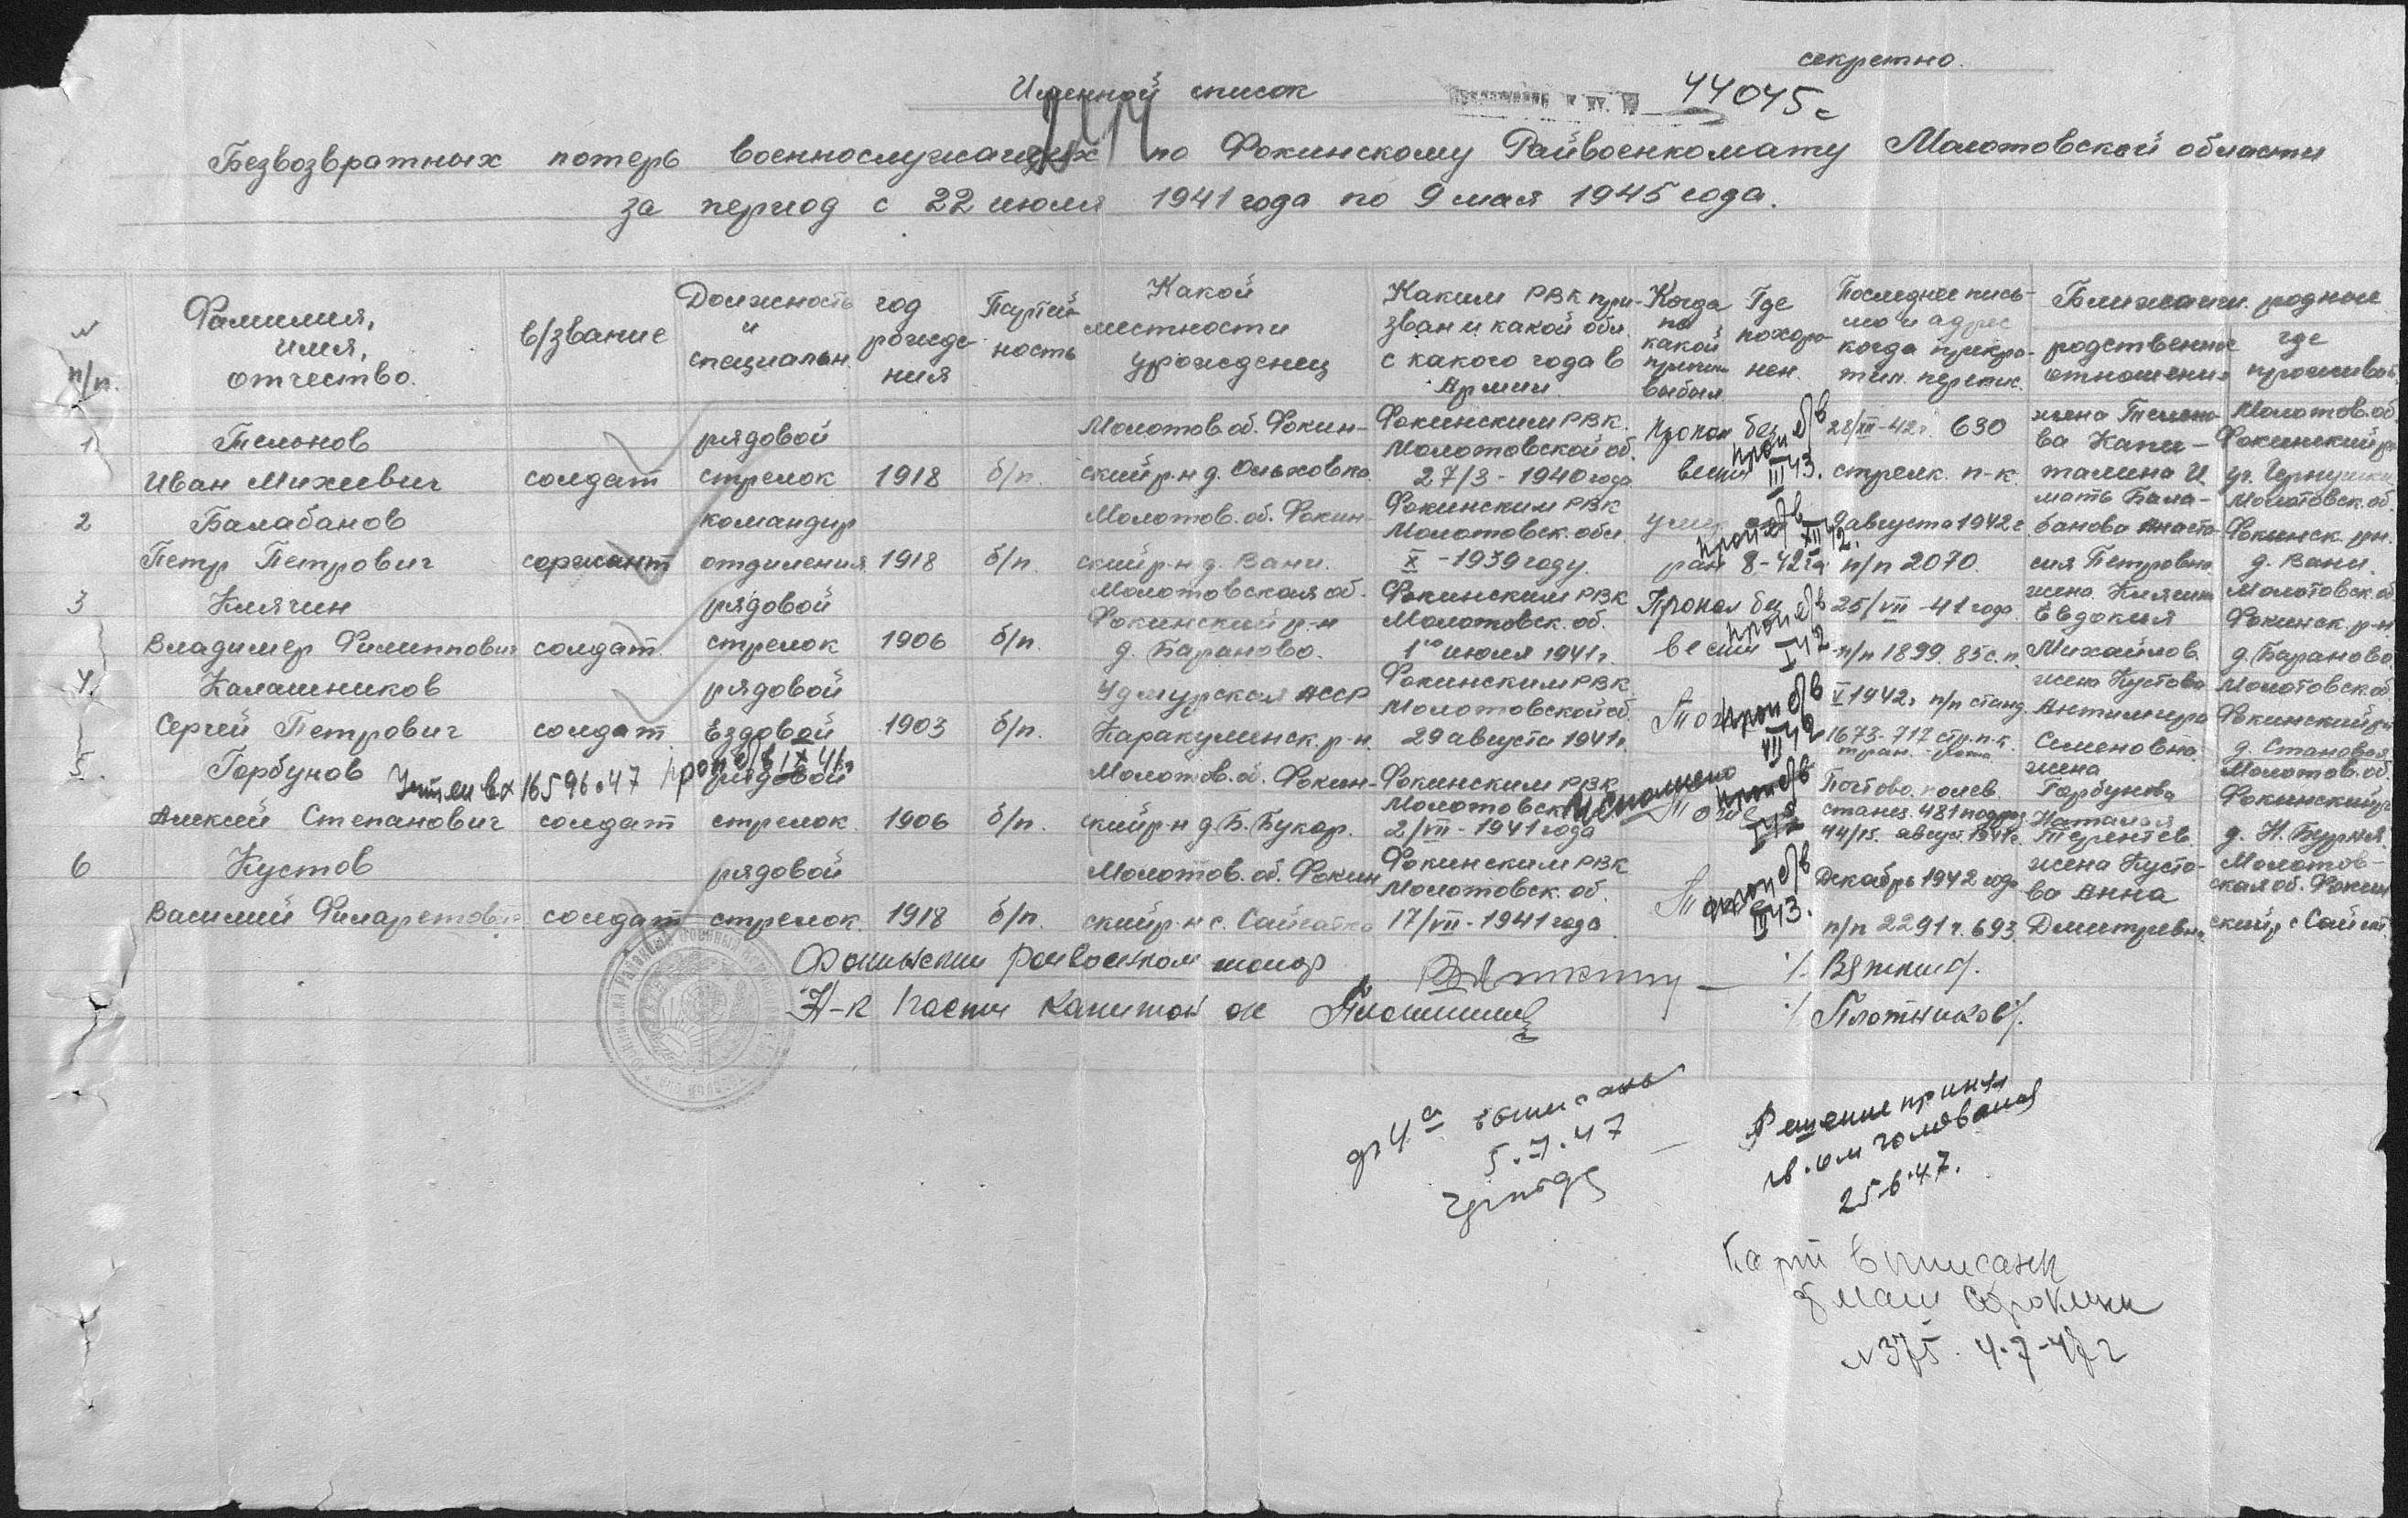 секретно.
Именной список
44045с
Безвозвратных потерь военнослужащих по Фокинскому Райвоенкомату Молотовской области
за период с 22 июля 1941 года по 9 мая 1945 года.
№ п/п.
Фамилия, имя, отчество.
в/звание
Должность и специальн.
год рождения
Партийность
Какой местности уроженец
Каким РВК призван и какой обл. с какого года в Армии
Когда по какой причин выбыл
Где похоронен.
Последнее письмо и адрес когда прекратил. перепис.
Ближайши. родные
родственное отношение
где проживает
1
Тельнов
Иван Михеевич
солдат
рядовой
стрелок
1918
б/п.
Молотов. об. Фокин-
ский р-н д. Ольховка
Фокинским РВК.
Молотовской об.
27/3 - 1940 года
Пропал без
вести
проп б/в
III 43.
28/XII-42г. 630
стрелк. п-к.
жена Тельно-
ва Капи-
талина И.
Молотов. об
Фокинский р
2
Балабанов
Петр Петрович
сержант
командир
отделения
1918
б/п.
Молотов. об. Фокин-
ский р-н д. Вани.
Фокинским РВК
Молотовск. обл.
X - 1939 году.
ран 8-42г
проп б/в
XII 42.
9 августа 1942 г
п/п 2070.
мать Бала-
банова Анаста-
сия Петровна
Молотовск. об.
Фокинск. рн.
д. Вани.
3
Клячин
Владимер Филиппович
солдат.
рядовой
стрелок
1906
б/п.
Молотовская об.
Фокинский р-н
д. Бараново.
Фокинским РВК
Молотовск. об.
1го июля 1941 г.
Пропал бе
вести
проп б/в
I 42
25/VII-41 года
п/п 1899. 85 с. п.
жена Клячина
Евдокия
Михайлов.
Молотовск. об
Фокинск. р-н.
д. Бараново.
4.
Калашников
Сергей Петрович
солдат
рядовой
Ездовой
1903
б/п.
Удмурская АССР
Каракулинск. р-н.
Фокинским РВК.
Молотовской об.
29 августа 1941 г.
проп б/в
VII 42
V 1942г. п/п станц.
1673-717 стр. п-к.
жена Кустова
Антимира
Семеновна.
Молотовск об.
Фокинский р
д. Становая.
5.
Горбунов
Учтен вх 16596.47 проп б/в IX 41г.
Алексей Степанович
солдат
рядовой
стрелок.
1906
б/п.
Молотов. об. Фокин-
ский р-н д. Б. Букор.
Фокинским РВК
Молотовск
2/VII-1941 года
проп б/в
Почтово. полев.
станц. 481 подраз
44/15. август. 1941 г.
жена
Горбунова
Наталья
Терентьев.
Молотов. об.
Фокинский р
6
Кустов
Василий Филаретович
солдат
рядовой
стрелок.
1918
б/п.
Молотов. об. Фокин
ский р-н с. Сайгатка
Фокинским РВК
Молотовск. об.
17/VII-1941 года
проп б/в
III 43.
Декабрь 1942 года
п/п 2291 ч. 693.
жена Кусто-
ва Анна
Дмитревна
Молотов-
ская об. Фокин
ский р с Сайгат
Фокинский райвоенком майор
/Вяткин/.
Н-к 1 части капитан
/Плотников/.
выписаны
5.7.47
Решение принял
25.6.47.
Карт выписаны
N375. 4.7-47г